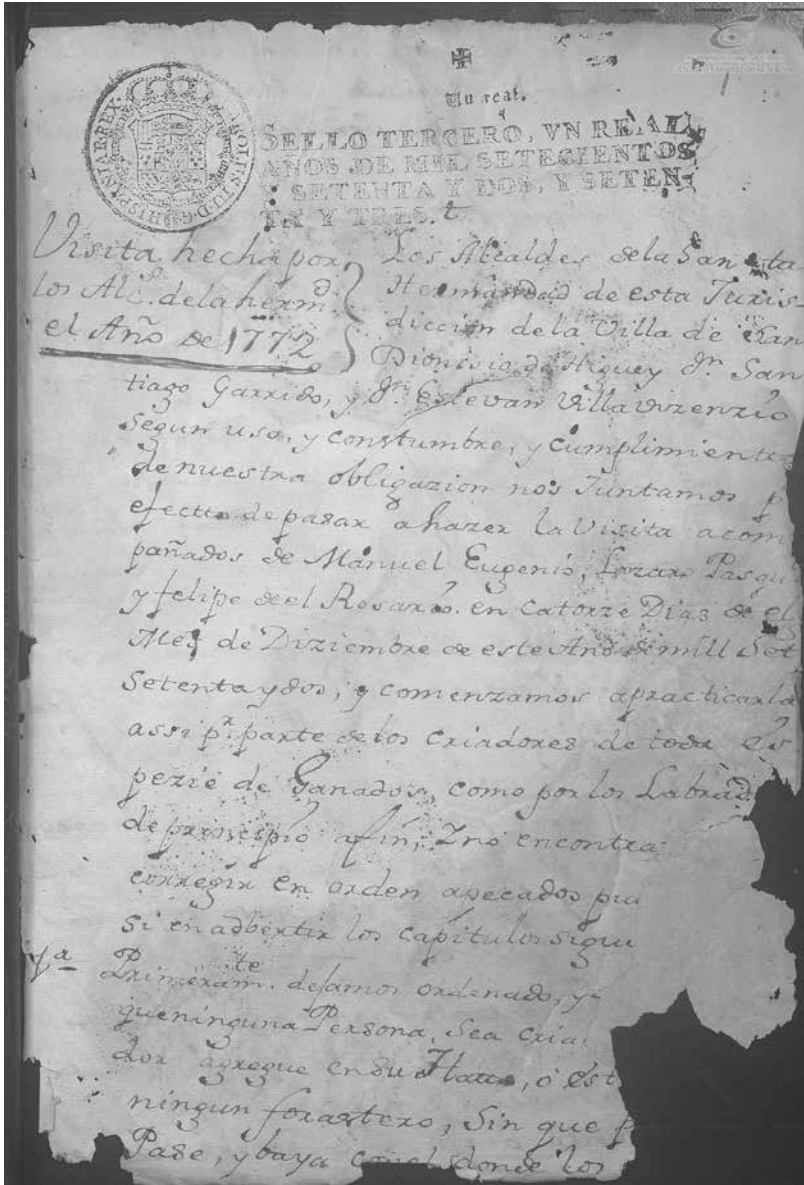 1
Un real.
CAROLUS III D G HISPANIAR REX
SELLO TERCERO, VN REAL,
AÑOS DE MIL SETECIENTOS
Y SETENTA Y DOS, Y SETEN-
TA Y TRES.
Visita hecha por
los Alc.s de la herm.d
el Año de 1772
Los Alcaldes de la Santa
Hermandad de esta Juris-
diccion de la Villa de San
Dionisio de Higuey Dn. San
tiago Garrido, y Dn. Estevan Villavizenzio
segun uso, y constumbre, y cumplimiento
de nuestra obligazion nos Juntamos p
efectto de pasar a hazer la Visita acom
pañados de Manuel Eugenio, Lozaro Pasqu
y felipe de el Rosario. en Catorze Dias de el
Mes de Diziembre de este Año de mill Set
Setenta y dos; y comenzamos a practicarla
assi pr. parte de los criadores de toda es
pezie de Ganados, como por los Labrad
de principio a fin, Y no encontra
corregir en orden a pecados pu
si en adbertir los capitulos sigui
1a Primeram.te dejamos ordenado, y
que ninguna Persona, Sea cria
dor agregue en su Hatto, ó est
ningun forastero, Sin que p
Pase, y baya donde los